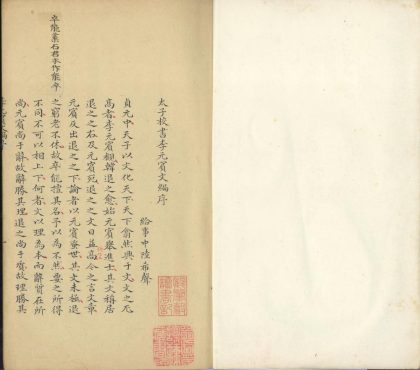 太子校書李元賓文編序
給事中陸希聲
貞元中天子以文化天下天下翕然興于文文之尤
高者李元賓觀韓退之愈始元賓舉進士其文稱居
退之之右及元賓死退之之文日益高今之言文章
元賓反出退之之下論者以元賓蚤世其文未極退
之窮老不休故卒能擅其名予以為不然要之所得
不同不可以相上下何者文以理為本而辭質在所
尚元賓尚于辭故辭勝其理退之尚于質故理勝其
卒能葉石君本作能卒